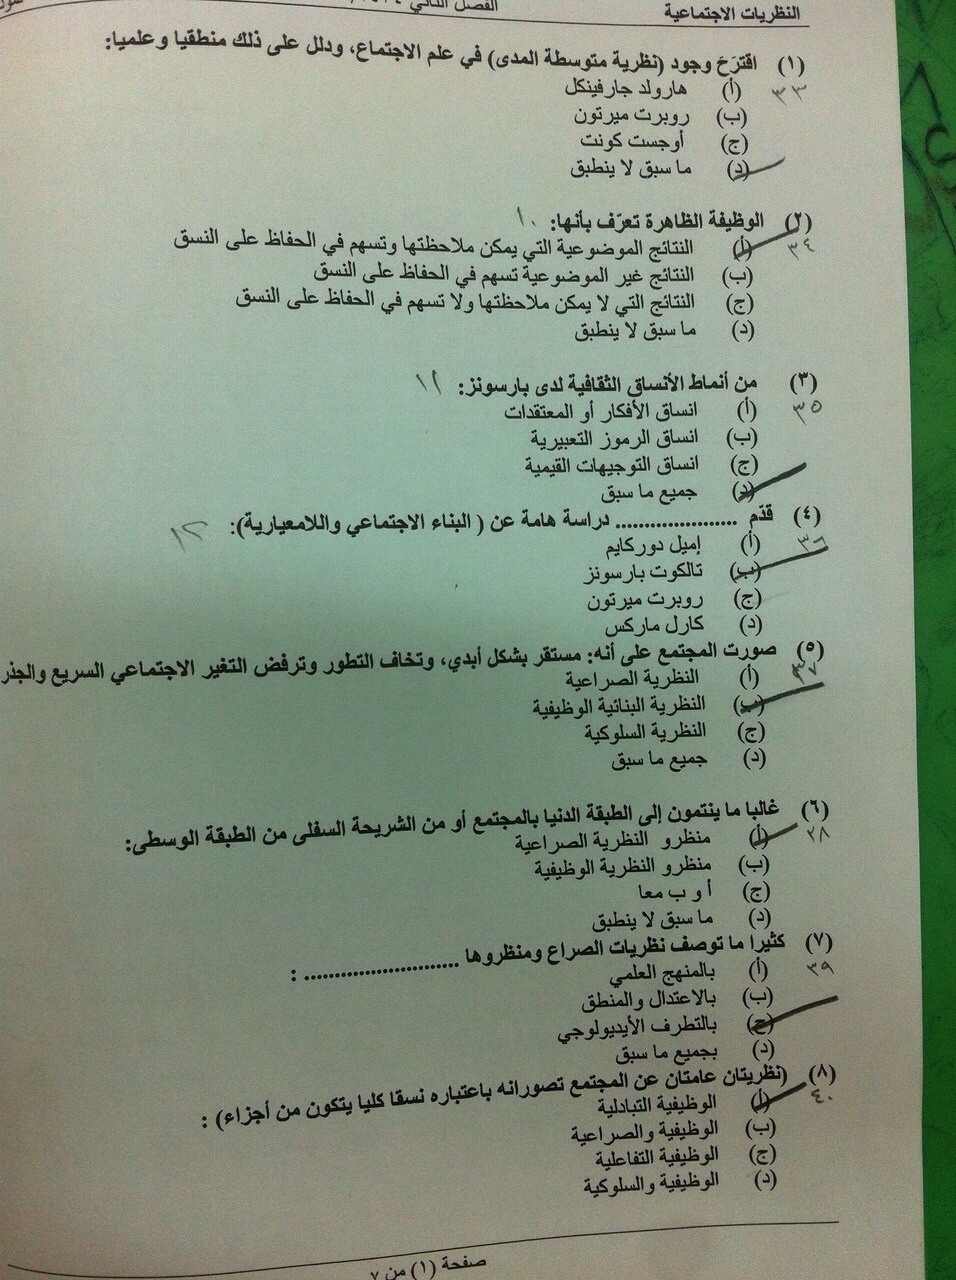 النظريات الاجتماعية
الفصل الثاني
(١) اقترَحَ وجود (نظرية متوسطة المدى) في علم الاجتماع، ودلل على ذلك منطقيا وعلميا:
٣٣
(أ) هارولد جارفينكل
(ب) روبرت ميرتون
(ج) أوجست كونت
(د) ما سبق لا ينطبق
(٢) الوظيفة الظاهرة تعرّف بأنها: ١٠
٣٤
(أ) النتائج الموضوعية التي يمكن ملاحظتها وتسهم في الحفاظ على النسق
(ب) النتائج غير الموضوعية تسهم في الحفاظ على النسق
(ج) النتائج التي لا يمكن ملاحظتها ولا تسهم في الحفاظ على النسق
(د) ما سبق لا ينطبق
(٣) من أنماط الأنساق الثقافية لدى بارسونز: ١١
٣٥
(أ) انساق الأفكار أو المعتقدات
(ب) انساق الرموز التعبيرية
(ج) انساق التوجيهات القيمية
(د) جميع ما سبق
(٤) قدّم ..................... دراسة هامة عن ( البناء الاجتماعي واللامعيارية): ١٢
٣٦
(أ) إميل دوركايم
(ب) تالكوت بارسونز
(ج) روبرت ميرتون
(د) كارل ماركس
(٥) صورت المجتمع على أنه: مستقر بشكل أبدي، وتخاف التطور وترفض التغير الاجتماعي السريع والجذر
٣٧
(أ) النظرية الصراعية
(ب) النظرية البنائية الوظيفية
(ج) النظرية السلوكية
(د) جميع ما سبق
(٦) غالبا ما ينتمون إلى الطبقة الدنيا بالمجتمع أو من الشريحة السفلى من الطبقة الوسطى:
٣٨
(أ) منظرو النظرية الصراعية
(ب) منظرو النظرية الوظيفية
(ج) أ و ب معا
(د) ما سبق لا ينطبق
(٧) كثيرا ما توصف نظريات الصراع ومنظروها .......................... :
٣٩
(أ) بالمنهج العلمي
(ب) بالاعتدال والمنطق
(ج) بالتطرف الأيديولوجي
(د) بجميع ما سبق
(٨) (نظريتان عامتان عن المجتمع تصورانه باعتباره نسقا كليا يتكون من أجزاء) :
٤٠
(أ) الوظيفية التبادلية
(ب) الوظيفية والصراعية
(ج) الوظيفية التفاعلية
(د) الوظيفية والسلوكية
صفحة (١) من ٧